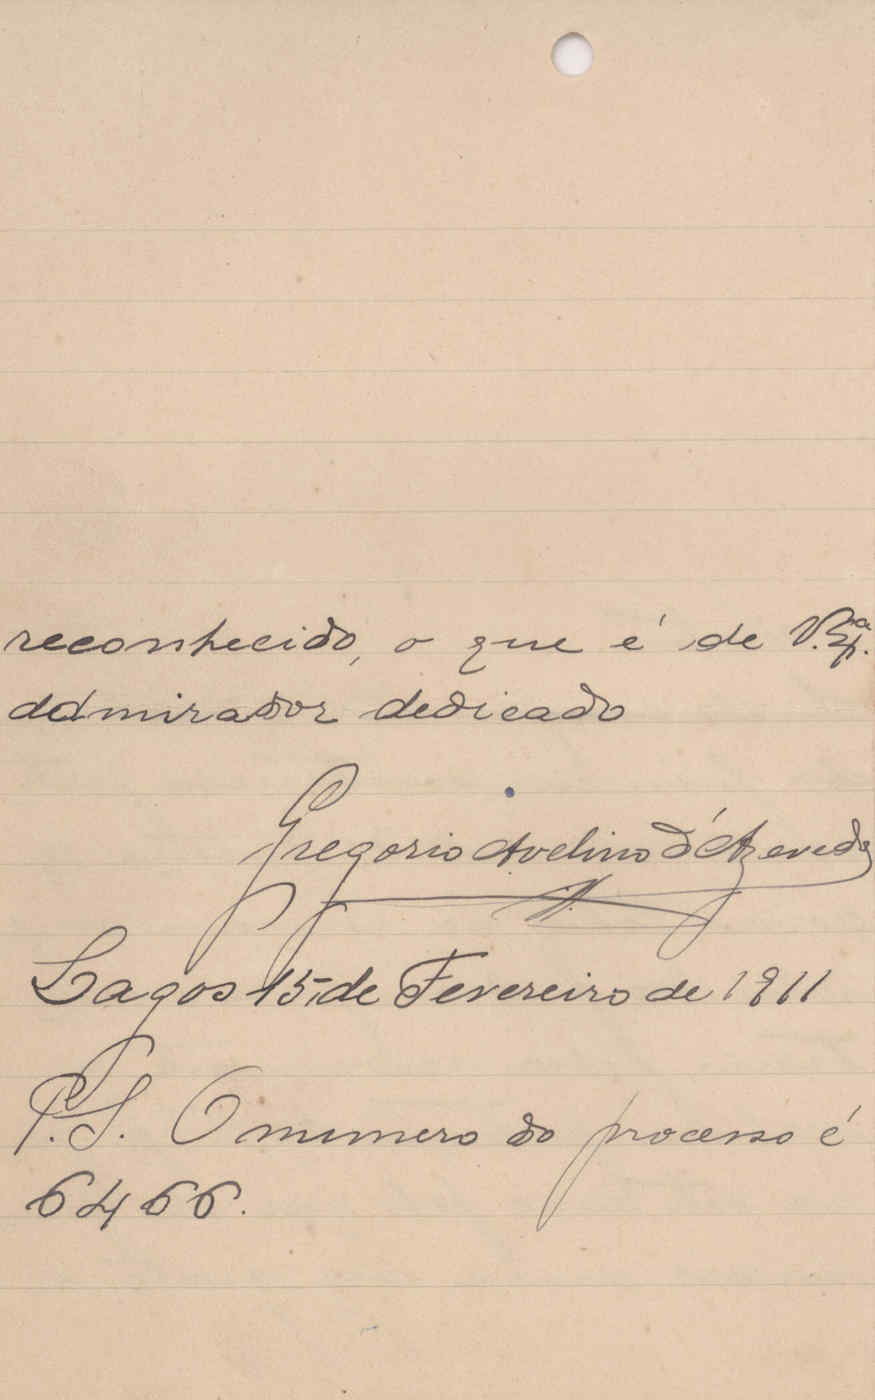 reconhecido, o que é de V. Exª.
admirador dedicado
Gregorio Avelino d'Azevedo
Lagos 15, de Fevereiro de 1911
P.S. O numero do processo é
6466.